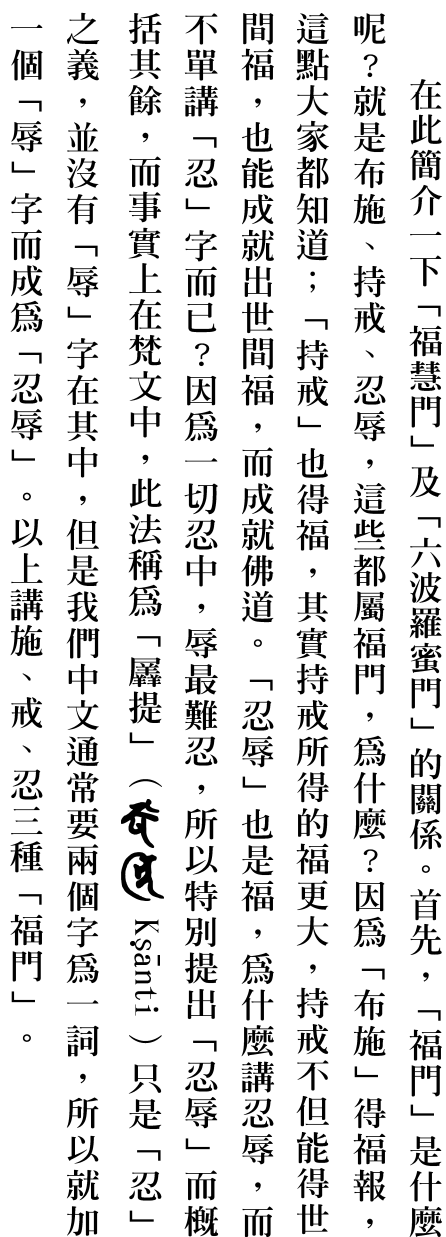 在此簡介一下「福慧門」及「六波羅蜜門」的關係。首先，「福門」是什麼
呢？就是布施、持戒、忍辱，這些都屬福門，爲什麼？因爲「布施」得福報，
這點大家都知道；「持戒」也得福，其實持戒所得的福更大，持戒不但能得世
間福，也能成就出世間福，而成就佛道。「忍辱」也是福，爲什麼講忍辱，而
不單講「忍」字而已？因爲一切忍中，辱最難忍，所以特別提出「忍辱」而概
括其餘，而事實上在梵文中，此法稱爲「羼提」（ Kṣānti ）只是「忍」
之義，並沒有「辱」字在其中，但是我們中文通常要兩個字爲一詞，所以就加
一個「辱」字而成爲「忍辱」。以上講施、戒、忍三種「福門」。